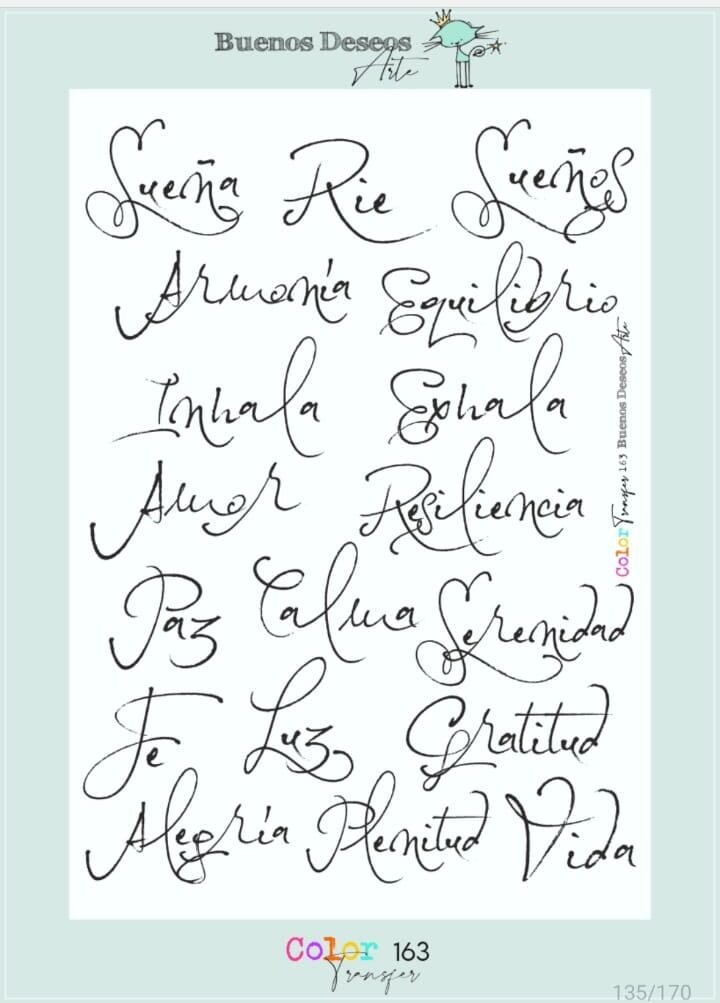 Buenos Deseos
Arte
Sueña Rie Sueños
Armonía Equilibrio
Inhala Exhala
Amor Resiliencia
Paz Calma Serenidad
Fe Luz Gratitud
Alegría Plenitud Vida
Color Transfer 163 Buenos Deseos Arte
Color 163
Transfer
135/170